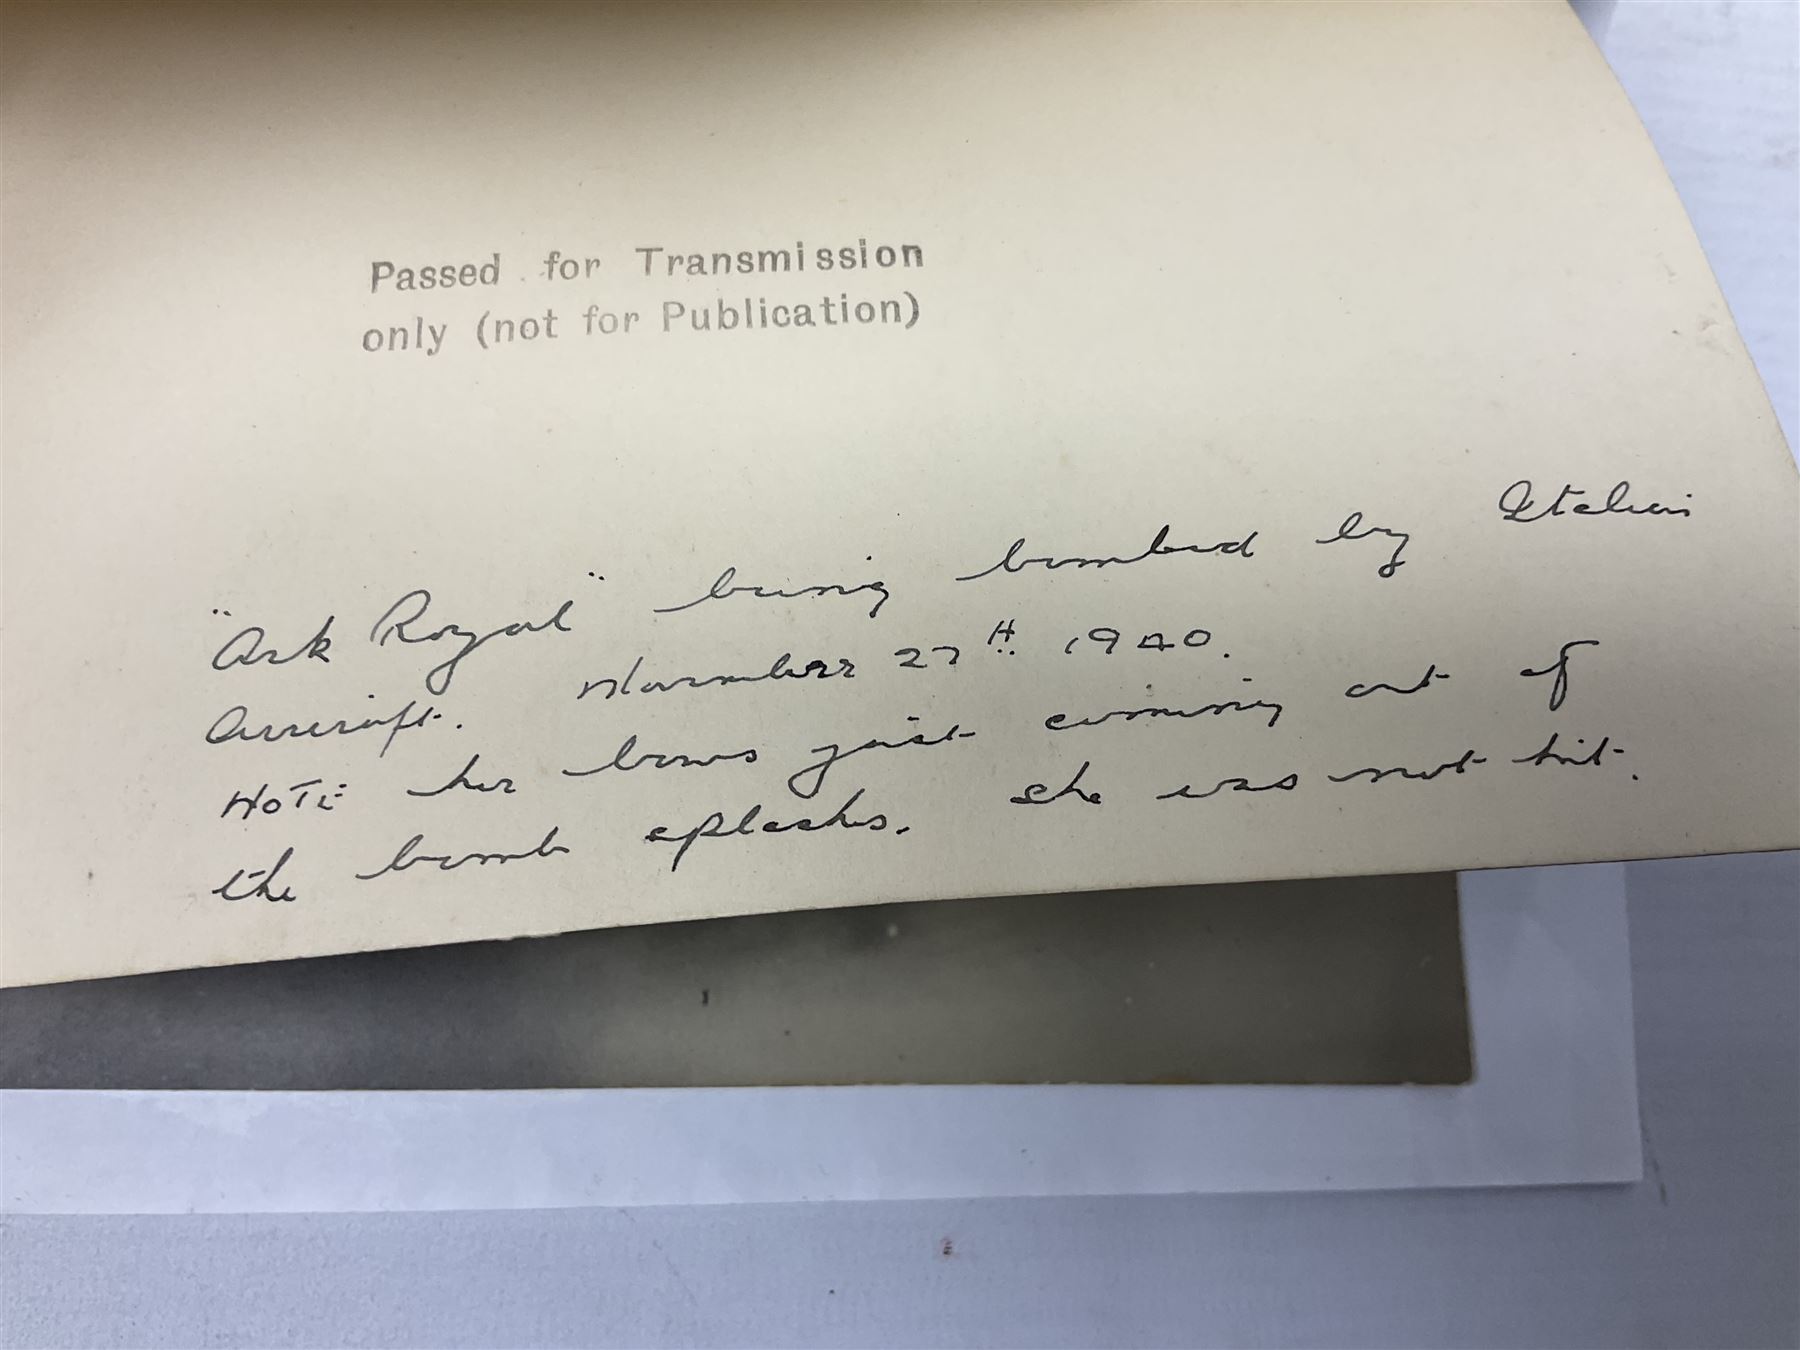 Passed for Transmission
only (not for Publication)
"Ark Royal" being bombed by Italian
Aircraft. November 27TH 1940.
NOTE her bows just coming out of
the bomb splashes. She was not hit.